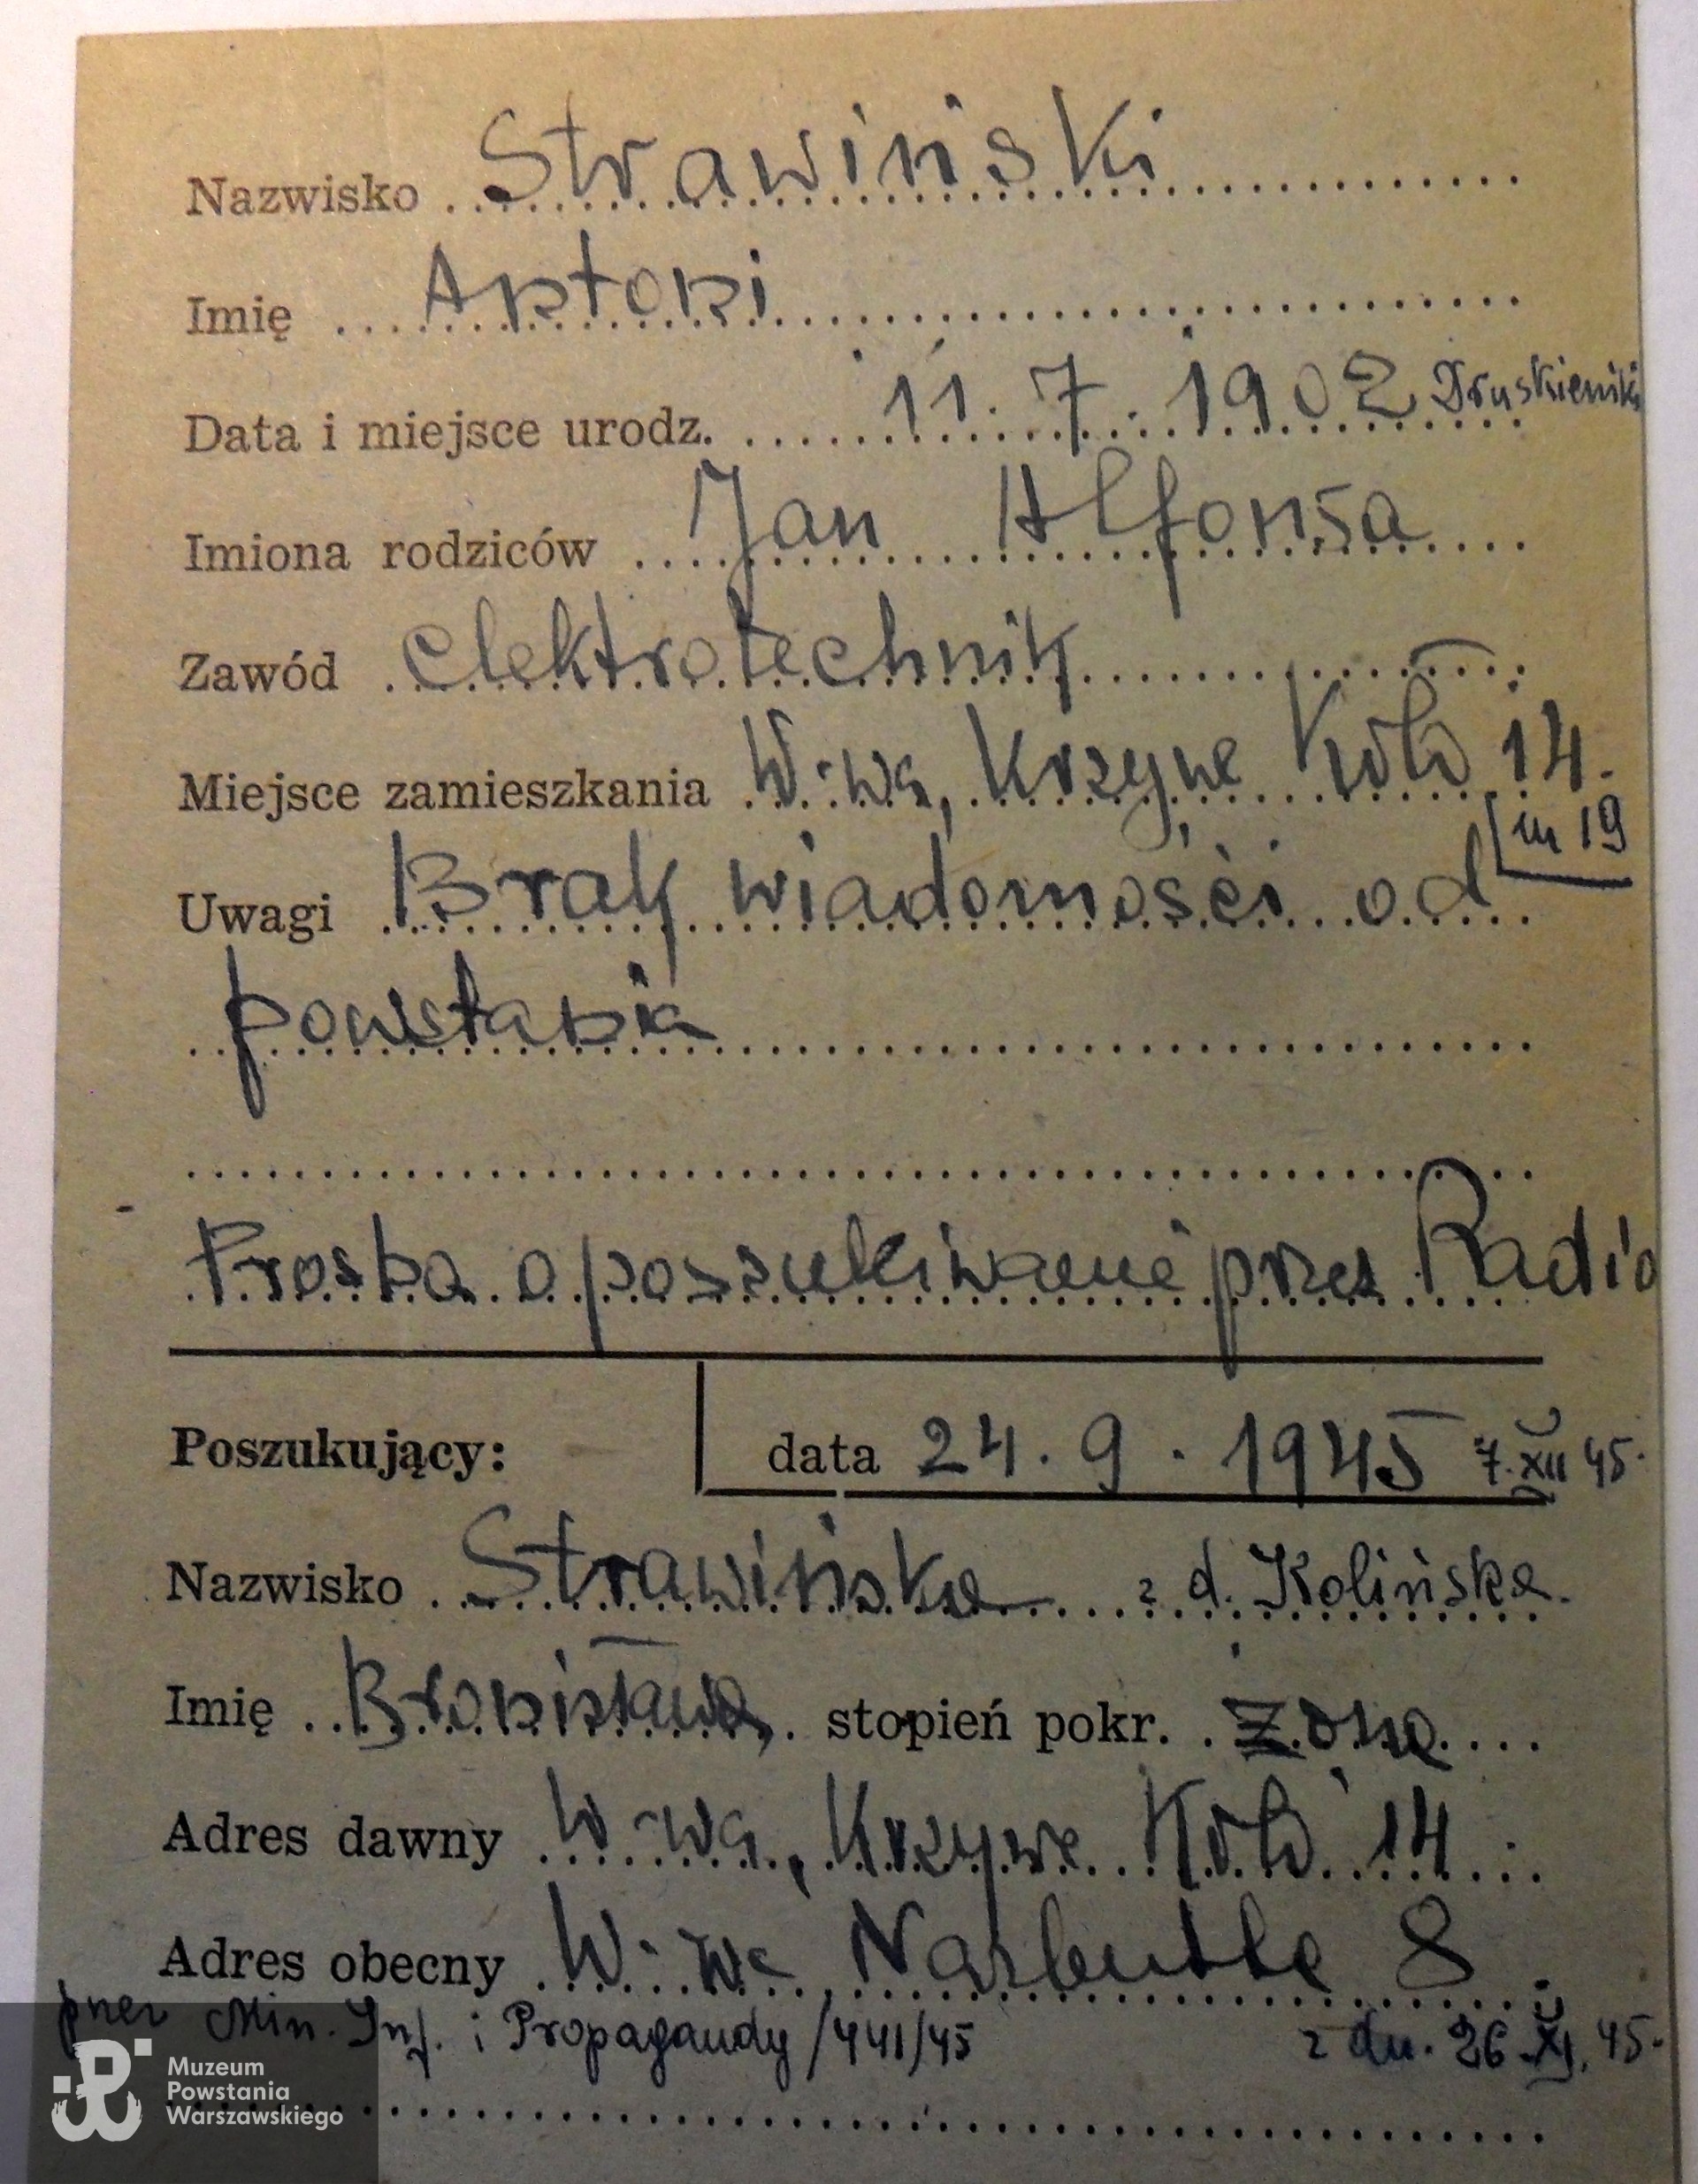 Nazwisko Strawiński
Imię Antoni
Data i miejsce urodz. 11.7.1902 Druskieniki
Imiona rodziców Jan Alfonsa
Zawód elektrotechnik
Miejsce zamieszkania W-wa, Krzywe Koło 14.
m 19
Uwagi Brak wiadomości od
powstania
Prośba o poszukiwanie przez Radio
Poszukujący: data 24.9.1945 7.XII 45.
Nazwisko Strawińska z d. Kolińska.
Imię Bronisława, stopień pokr. Żona
Adres dawny W-wa, Krzywe Koło 14
Adres obecny W-wa Narbutta 8
przez Min. Inf. i Propagandy /441/45 z dn. 26 XI. 45.
Muzeum
Powstania
Warszawskiego